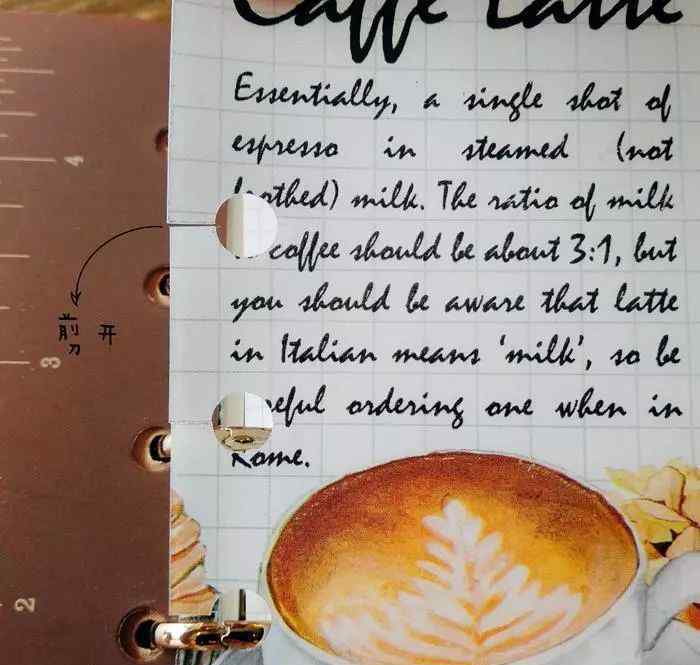 Caffe Latte
Essentially, a single shot of
espresso in steamed (not
frothed) milk. The ratio of milk
coffee should be about 3:1, but
you should be aware that latte
in Italian means 'milk', so be
ordering one when in
Rome.
剪开
4
3
2